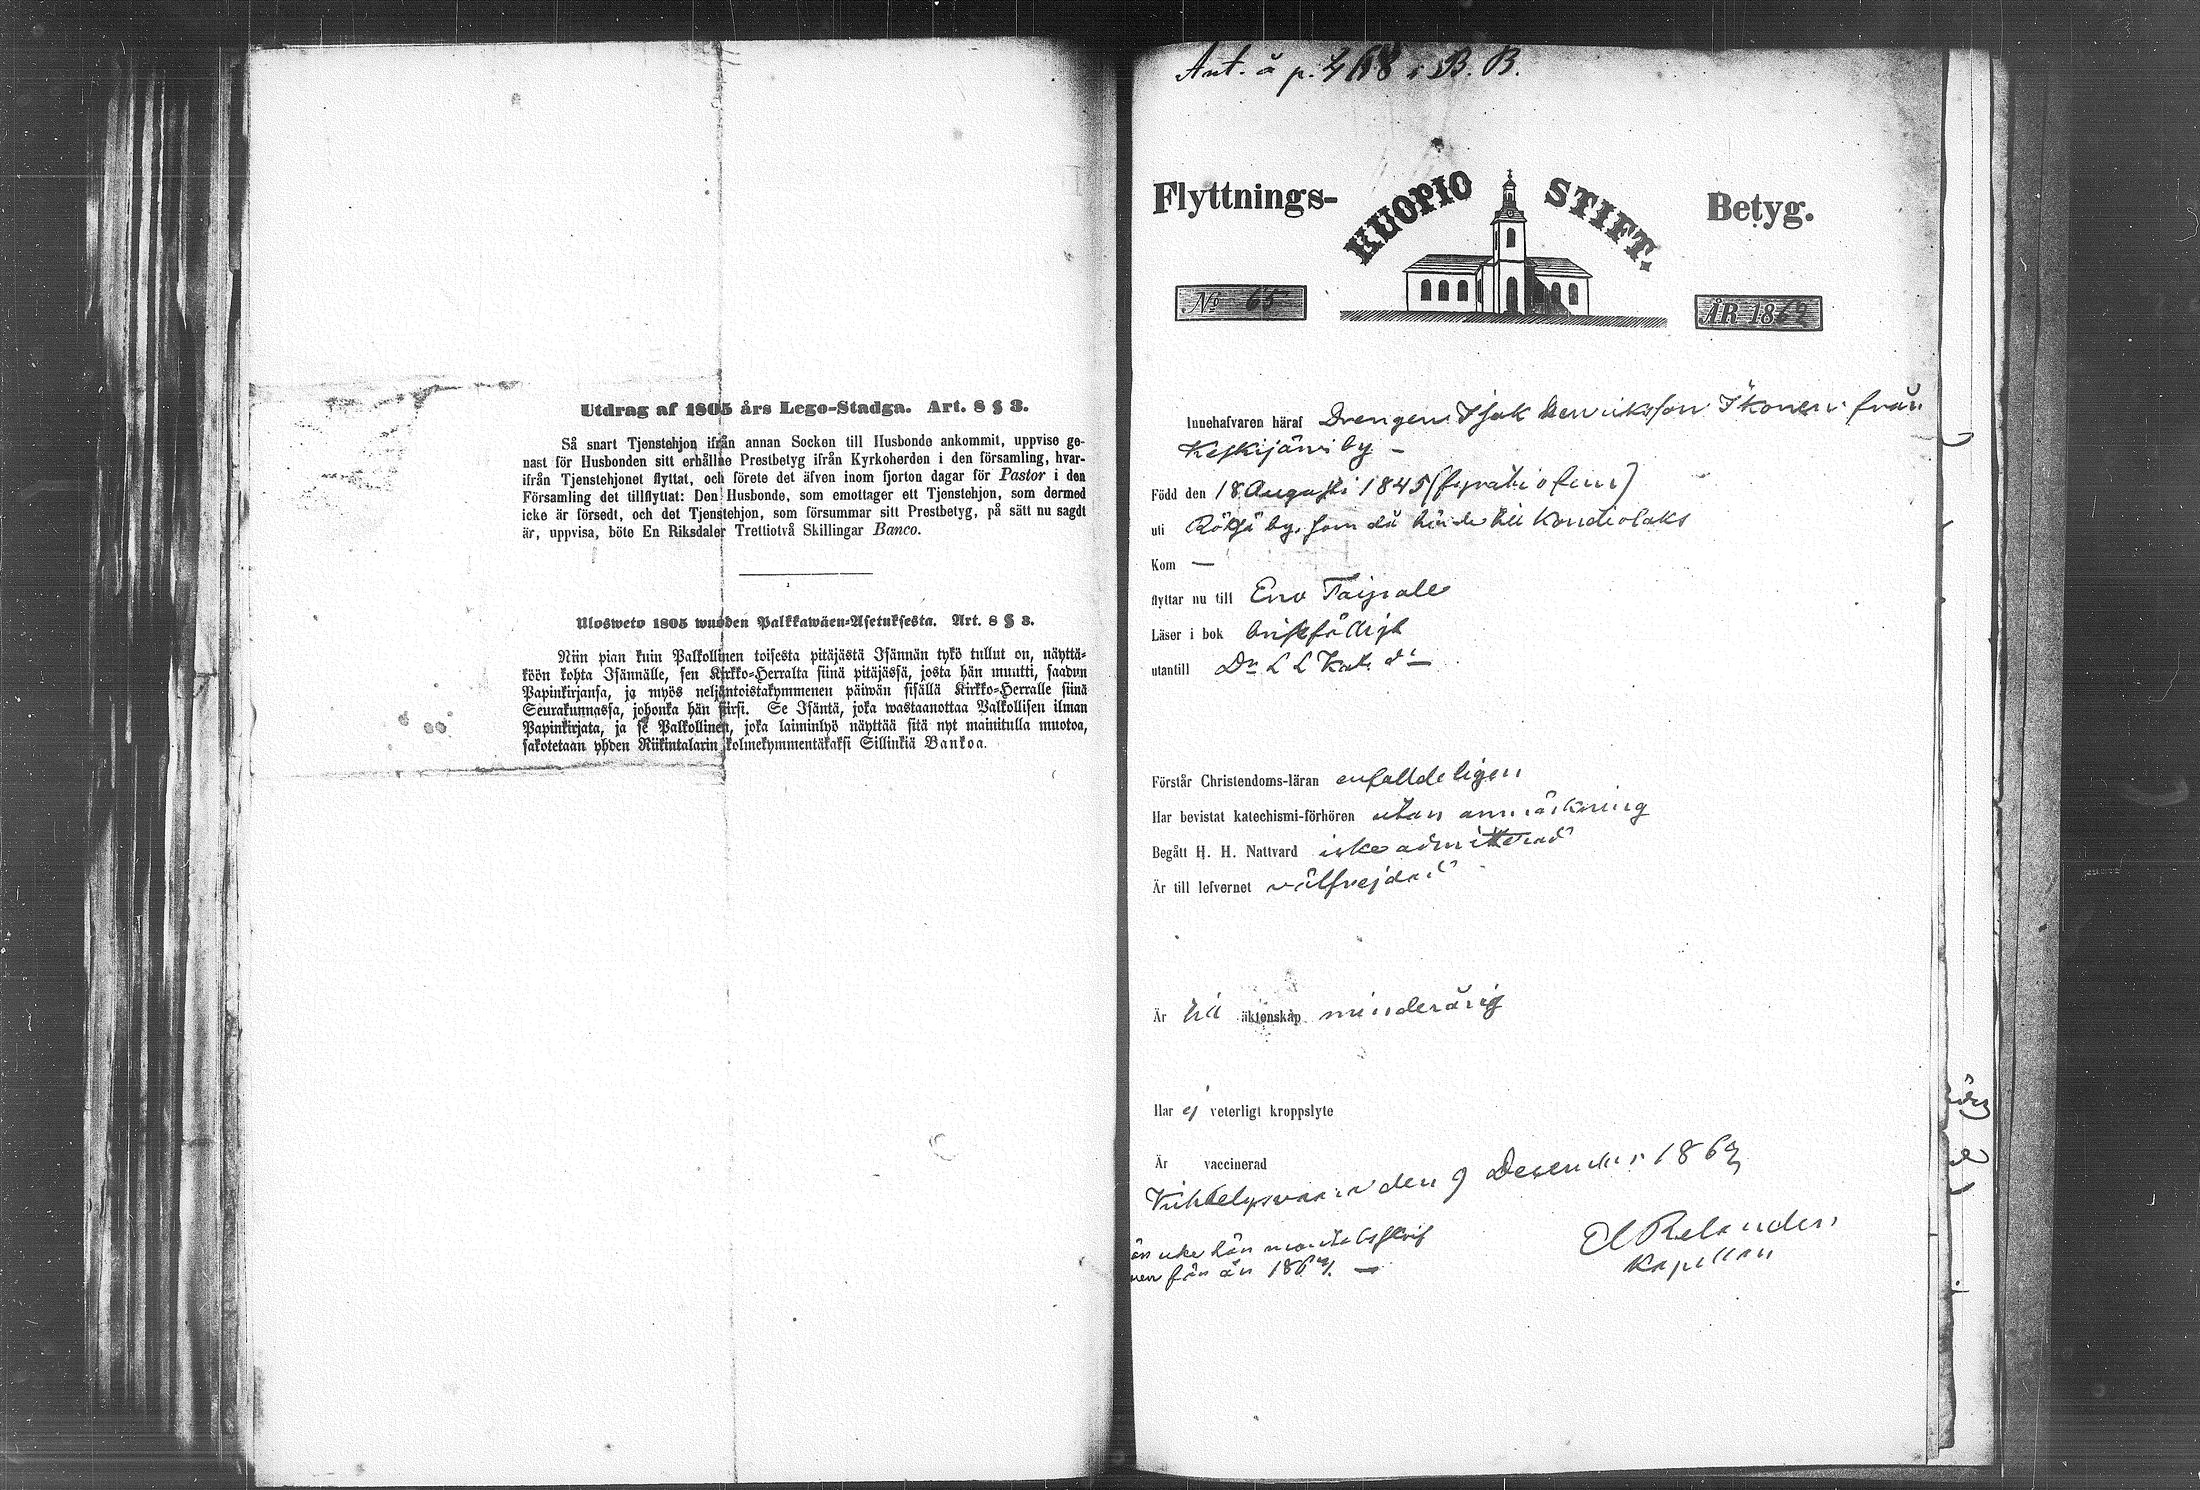 Utdrag af 1805 års Lego-Stadga. Art. 8 § 3.
Så snart Tjenstehjon ifrån annan Socken till Husbonde ankommit, uppvise ge-
nast för Husbonden sitt erhållne Prestbetyg ifrån Kyrkoherden i den församling, hvar-
ifrån Tjenstehjonet flyttat, och förete det äfven inom fjorton dagar för Pastor i den
Församling det tillflyttat: Den Husbonde, som emottager ett Tjenstehjon, som dermed
icke är försedt, och det Tjenstehjon, som försummar sitt Prestbetyg, på sätt nu sagdt
är, uppvisa, böte En Riksdaler Trettiotvå Skillingar Banco.
Ulosweto 1805 wuoden Palkkawäen-Asetuksesta. Art. 8 § 3.
Niin pian kuin Palkollinen toisesta pitäjästä Isännän tykö tullut on, näyttä-
köön kohta Isännälle, sen Kirkko-Herralta siinä pitäjässä, josta hän muutti, saadun
Papinkirjansa, ja myös neljäntoistakymmenen päiwän sisällä Kirkko-Herralle siinä
Seurakunnassa, johonka hän siirsi. Se Isäntä, joka wastaanottaa Palkollisen ilman
Papinkirjata, ja se Palkollinen, joka laiminlyö näyttää sitä nyt mainitulla muotoa,
sakotetaan yhden Riikintalarin kolmekymmentäkaksi Sillinkiä Bankoa.
Ant. å p. 468 i B. B.
Flyttnings- KUOPIO STIFT. Betyg.
No 65 ÅR 1862
Innehafvaren häraf Drengen Isak Henriksson Ikonen från
Keskijärvi by –
Född den 18 Augusti 1845 (fyratio fem)
uti by, som då hörde till Kondiolaks
Kom —
flyttar nu till Eno Taipale
Läser i bok försvarligt
utantill Dn L L Kat.
Förstår Christendoms-läran enfalldeligen
Har bevistat katechismi-förhören utan anmärkning
Begått H. H. Nattvard icke admitterad
Är till lefvernet välfrejdad
Är till äktenskap minderårig
Har ej veterligt kroppslyte
Är vaccinerad
Kihtelysvaara den 9 December 1862
El Relander
Kapellan
är icke här mantalsskrif
ven för år 186